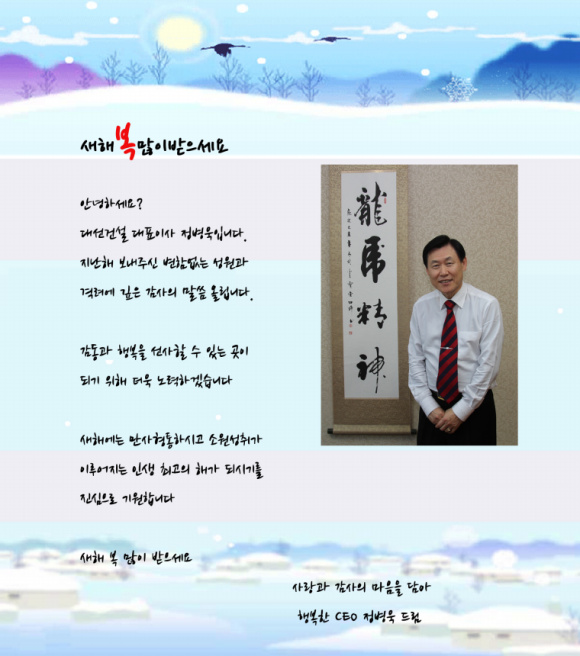 새해 복 많이받으세요
안녕하세요?
대선건설 대표이사 정병욱입니다.
지난해 보내주신 변함없는 성원과
격려에 깊은 감사의 말씀 올립니다.
감동과 행복을 선사할 수 있는 곳이
되기 위해 더욱 노력하겠습니다
새해에는 만사형통하시고 소원성취가
이루어지는 인생 최고의 해가 되시기를
진심으로 기원합니다
새해 복 많이 받으세요
사랑과 감사의 마음을 담아
행복한 CEO 정병욱 드림
龍
馬
精
神